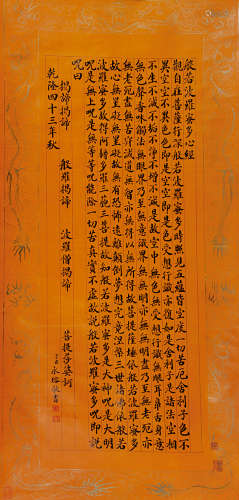 般若波羅蜜多心經
觀自在菩薩行深般若波羅蜜多時照見五蘊皆空度一切苦厄舍利子色不
異空空不異色色即是空空即是色受想行識亦復如是舍利子是諸法空相
不生不滅不垢不淨不增不減是故空中無色無受想行識無眼耳鼻舌身意
無色聲香味觸法無眼界乃至無意識界無無明亦無無明盡乃至無老死亦
無老死盡無苦集滅道無智亦無得以無所得故菩提薩埵依般若波羅蜜多
故心無罣礙無罣礙故無有恐怖遠離顛倒夢想究竟涅槃三世諸佛依般若
波羅蜜多故得阿耨多羅三藐三菩提故知般若波羅蜜多是大神咒是大明
咒是無上咒是無等等咒能除一切苦真實不虛故說般若波羅蜜多咒即說
咒曰
揭諦揭諦 般羅揭諦 波羅僧揭諦 菩提莎婆訶
乾隆四十三年秋 永